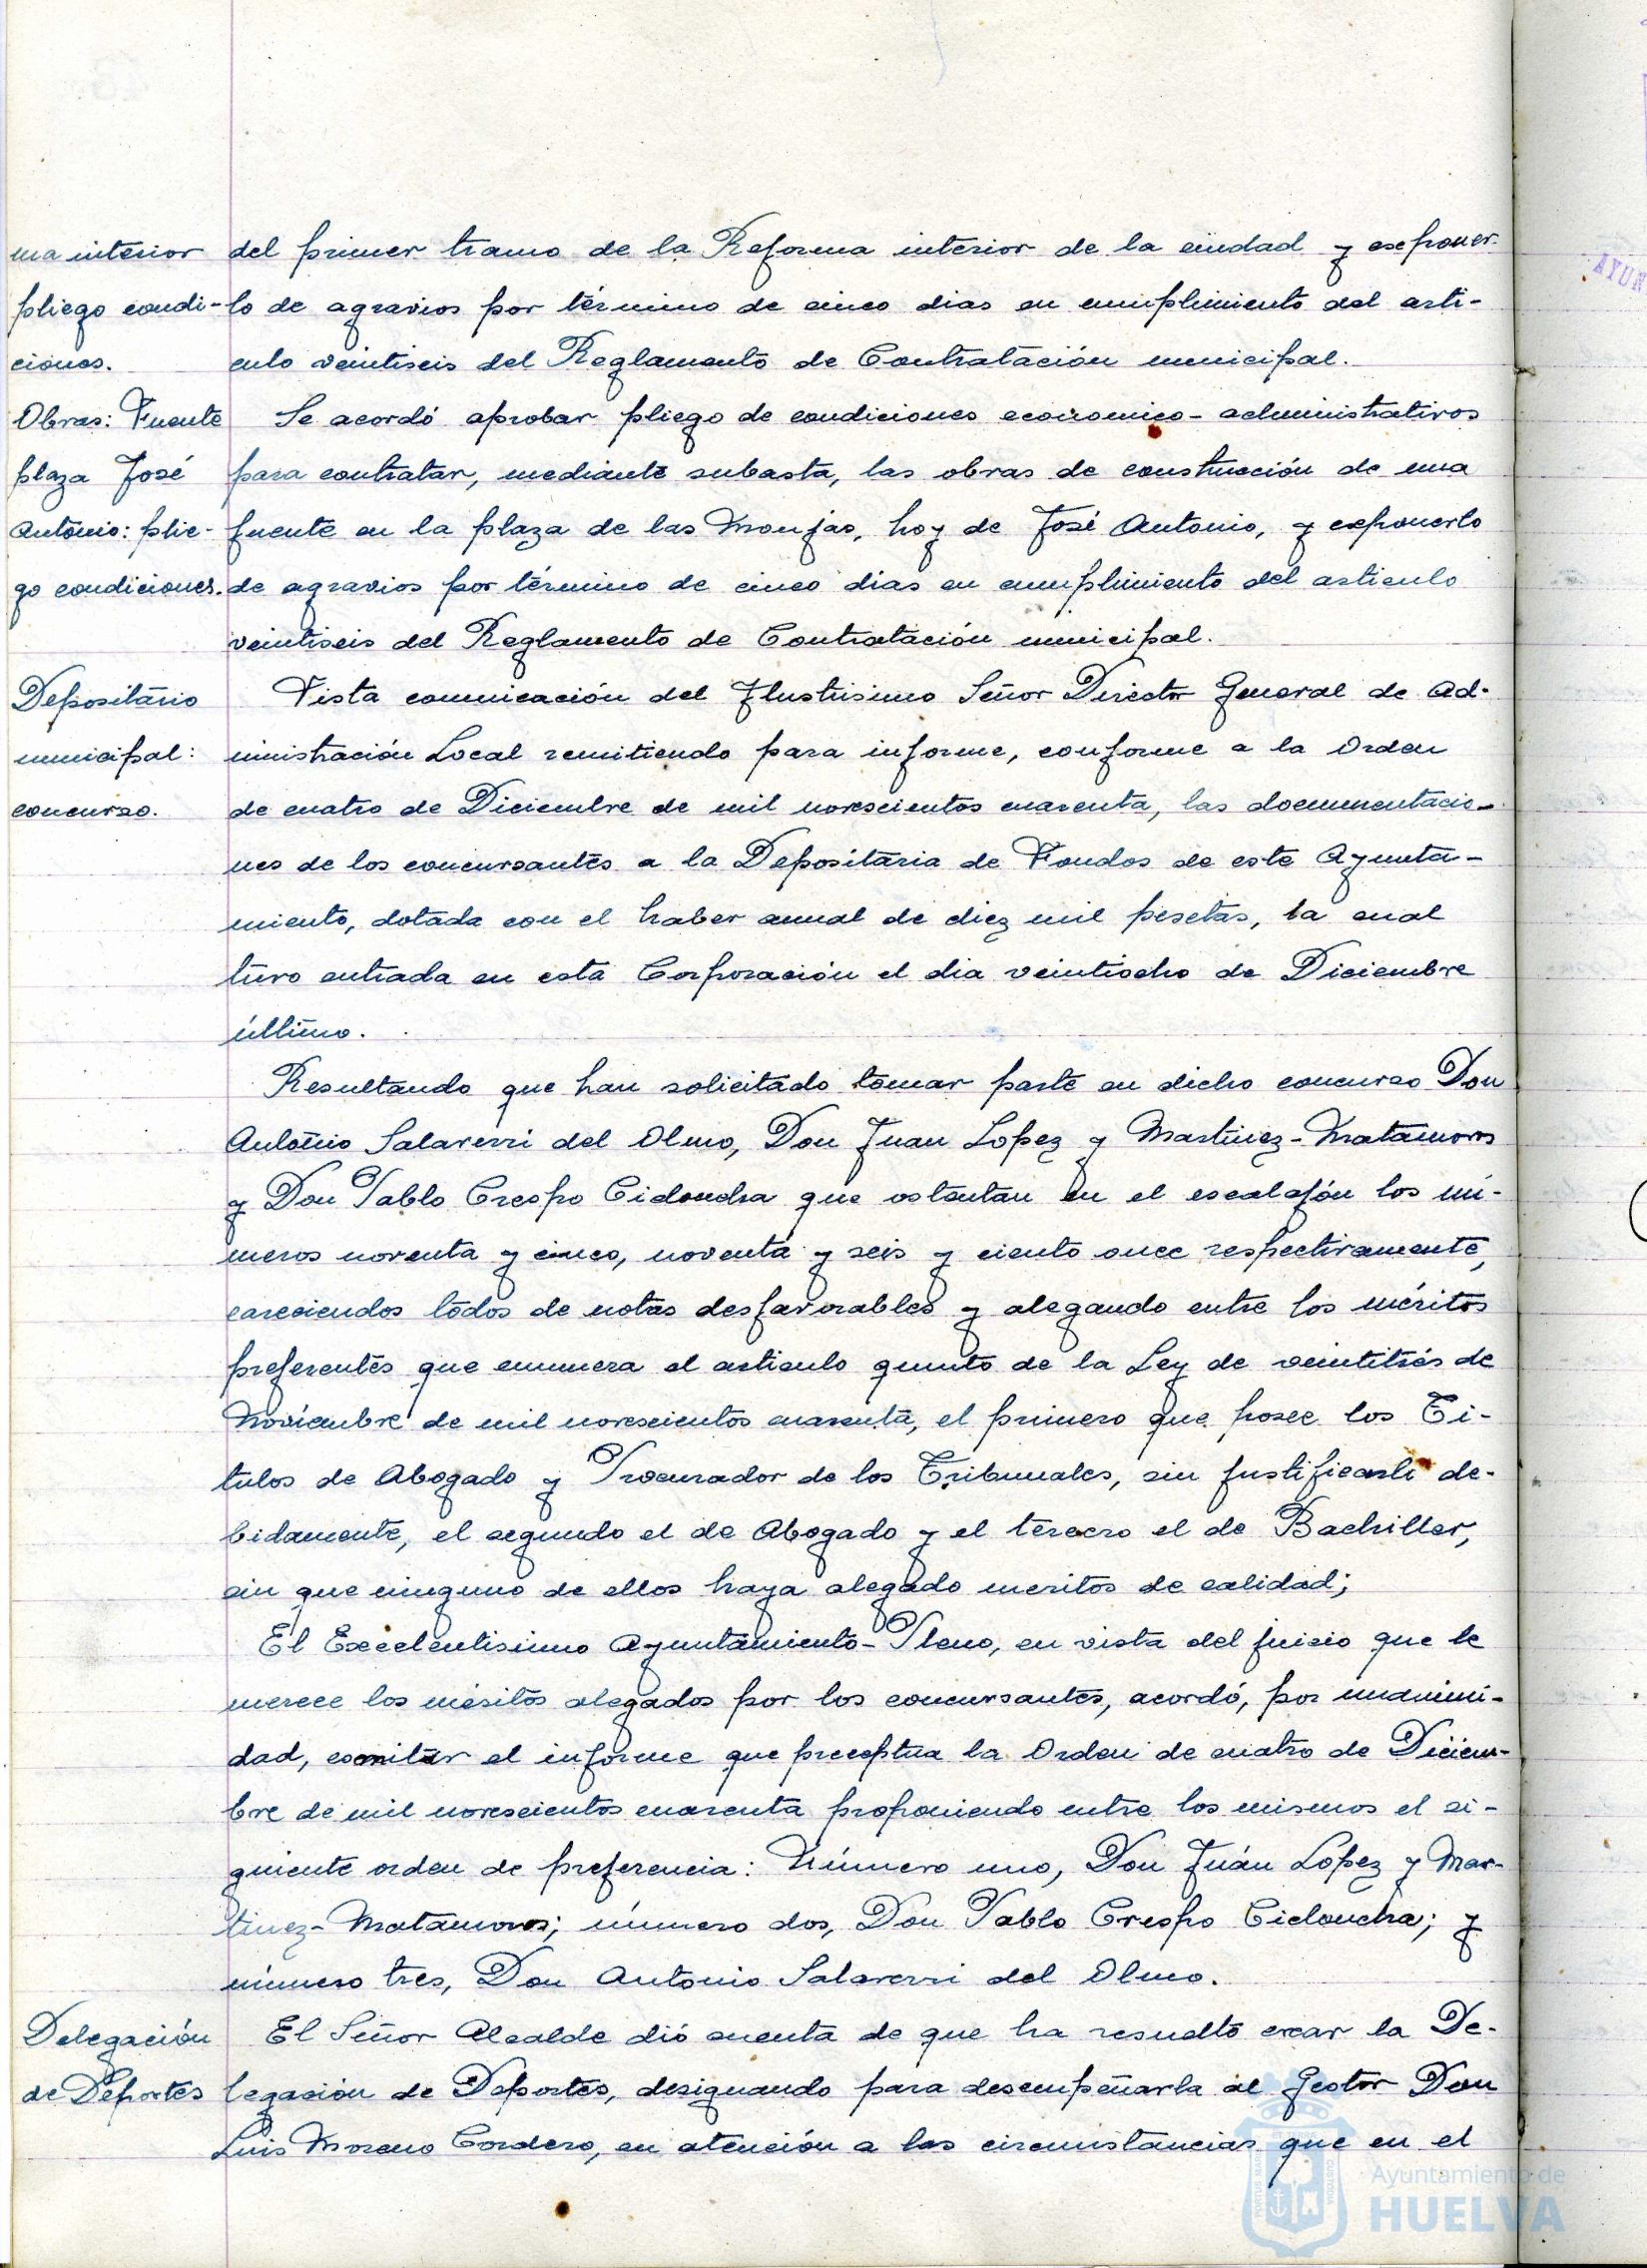 ma interior
pliego condi-
ciones.
del primer tramo de la Reforma interior de la ciudad y exponer-
lo de agravios por término de cinco dias en cumplimiento del arti-
culo veintiseis del Reglamento de Contratación municipal.
Obras: Fuente
plaza José
Antonio: plie-
go condiciones.
Se acordó aprobar pliego de condiciones economico-administrativos
para contratar, mediante subasta, las obras de construcción de una
fuente en la plaza de las Monjas, hoy de José Antonio, y exponerlo
de agravios por término de cinco dias en cumplimiento del articulo
veintiseis del Reglamento de Contratación municipal.
Depositario
municipal:
concurso.
Vista comunicación del Ilustrisimo Señor Director General de Ad-
ministración Local remitiendo para informe, conforme a la Orden
de cuatro de Diciembre de mil novescientos cuarenta, las documentacio-
nes de los concursantes a la Depositaria de Fondos de este Ayunta-
miento, dotada con el haber anual de diez mil pesetas, la cual
tuvo entrada en esta Corporación el dia veintiocho de Diciembre
último.
Resultando que han solicitado tomar parte en dicho concurso Don
Antonio Salaverri del Olmo, Don Juan Lopez y Martinez-Matamoros
y Don Pablo Crespo Cidoncha que ostentan en el escalafón los nú-
meros noventa y cinco, noventa y seis y ciento once respectivamente,
careciendos todos de notas desfavorables y alegando entre los méritos
preferentes que enumera el articulo quinto de la Ley de veintitrés de
Noviembre de mil novescientos cuarenta, el primero que posee los Ti-
tulos de Abogado y Procurador de los Tribunales, sin justificarlo de-
bidamente, el segundo el de Abogado y el tercero el de Bachiller,
sin que ninguno de ellos haya alegado meritos de calidad;
El Excelentisimo Ayuntamiento-Pleno, en vista del juicio que le
merece los méritos alegados por los concursantes, acordó, por unanimi-
dad, emitir el informe que preceptua la Orden de cuatro de Diciem-
bre de mil novescientos cuarenta proponiendo entre los mismos el si-
guiente orden de preferencia: Número uno, Don Juán Lopez y Mar-
tinez-Matamoros; número dos, Don Pablo Crespo Cidoncha; y
número tres, Don Antonio Salaverri del Olmo.
Delegación
de Deportes
El Señor Alcalde dió cuenta de que ha resuelto crear la De-
legación de Deportes, designando para desempeñarla al Gestor Don
Luis Moreno Cordero, en atención a las circunstancias que en el
Ayuntamiento de
HUELVA
AYUN